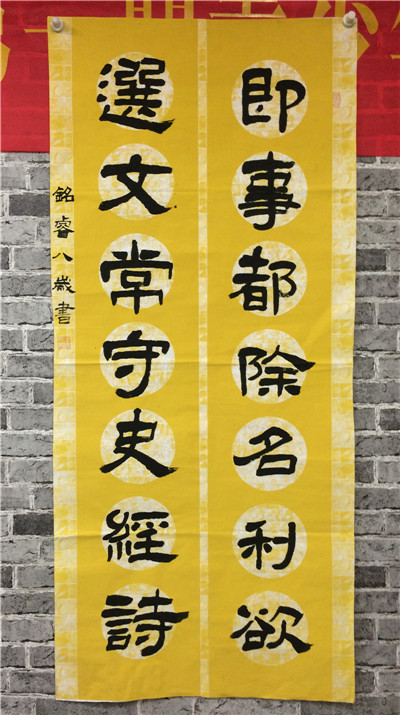 即事都除名利欲
選文常守史經詩
銘睿八歲書